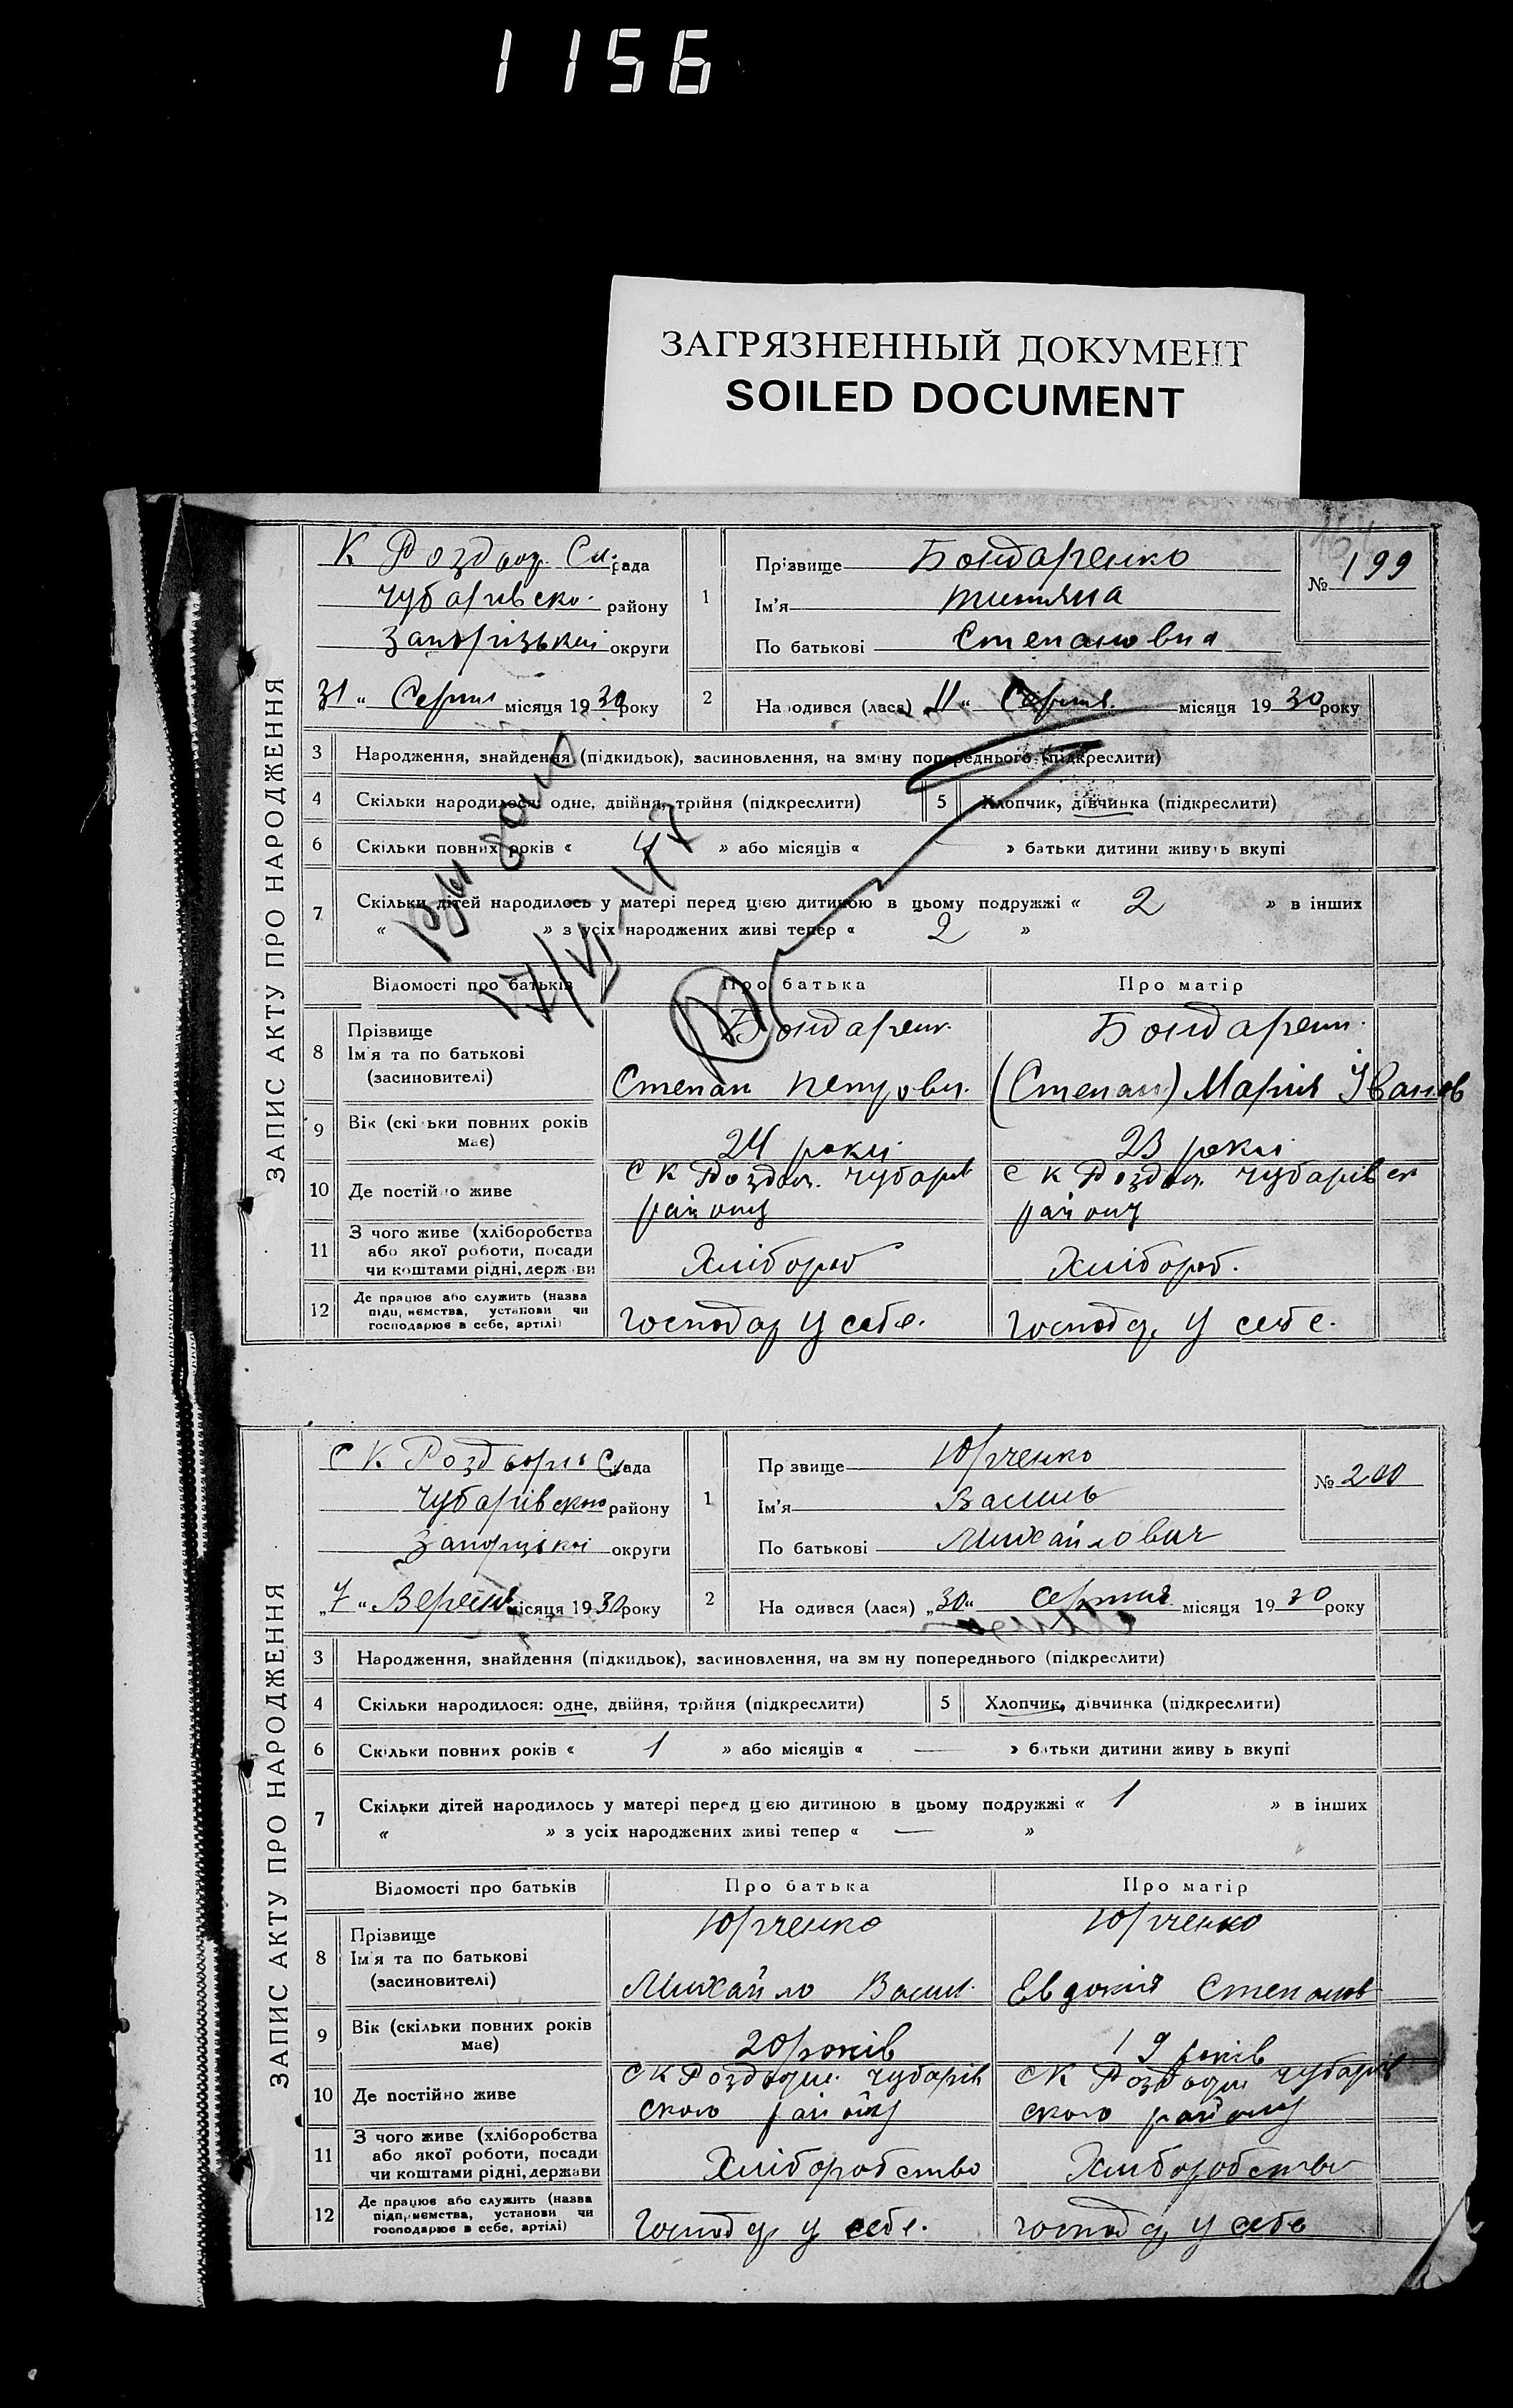 1156
ЗАГРЯЗНЕННЫЙ ДОКУМЕНТ
SOILED DOCUMENT
ЗАПИС АКТУ ПРО НАРОДЖЕННЯ
К Роздор. Сіл. рада
Чубарівско. району
Запорізької округи
31 " Серпня місяця 1930 року
1
Прізвище Бондаренко
Ім'я
По батькові Степановна
№ 199
2
Народився (лася) 11 " Серпня. місяця 19 30 року
3 Народження, знайдення (підкидьок), засиновлення, на зміну попереднього (підкреслити)
4 Скільки народилося: одне, двійня, трійня (підкреслити) 5 Хлопчик, дівчинка (підкреслити)
6 Скільки повних років « 4 » або місяців « » батьки дитини живуть вкупі
7 Скільки дітей народилось у матері перед цією дитиною в цьому подружжі « 2 » в інших
« » з усіх народжених живі тепер « 2 »
Відомості про батьків Про батька Про матір
8 Прізвище
Ім'я та по батькові
(засиновителі)
Бондаренк. Бондаренк.
Степан Петрович. (Степан) Марія Іванов
9 Вік (скільки повних років має) 24 роки 23 роки
10 Де постійно живе с К Роздор. Чубарів району с К Роздор. Чубарівск району
11 З чого живе (хліборобства
або якої роботи, посади
чи коштами рідні, держави
Хлібороб Хлібороб.
12 Де працює або служить (назва
підприємства, установи чи
господарює в себе, артілі)
Господар у себе. Господар у себе.
ЗАПИС АКТУ ПРО НАРОДЖЕННЯ
С К Роздорсь Сіл рада
Чубарівского району
Запорізької округи
„7" Вересня місяця 1930 року
1
Прізвище Юрченко
Ім'я Василь
По батькові Михайлович
№ 200
2
Народився (лася) „30" Серпня місяця 19 30 року
3 Народження, знайдення (підкидьок), засиновлення, на зміну попереднього (підкреслити)
4 Скільки народилося: одне, двійня, трійня (підкреслити) 5 Хлопчик, дівчинка (підкреслити)
6 Скільки повних років « 1 » або місяців « — » батьки дитини живуть вкупі
7 Скільки дітей народилось у матері перед цією дитиною в цьому подружжі « 1 » в інших
« » з усіх народжених живі тепер « — »
Відомості про батьків Про батька Про матір
8 Прізвище
Ім'я та по батькові
(засиновителі)
Юрченко Юрченко
Михайло Васил. Евдокія Степанов
9 Вік (скільки повних років має) 20 років 19 років
10 Де постійно живе СК Роздори Чубарів ского району СК Роздори Чубарів ского району
11 З чого живе (хліборобства
або якої роботи, посади
чи коштами рідні, держави
Хліборобство Хліборобство
12 Де працює або служить (назва
підприємства, установи чи
господарює в себе, артілі)
Господар у себе. Господар у себе